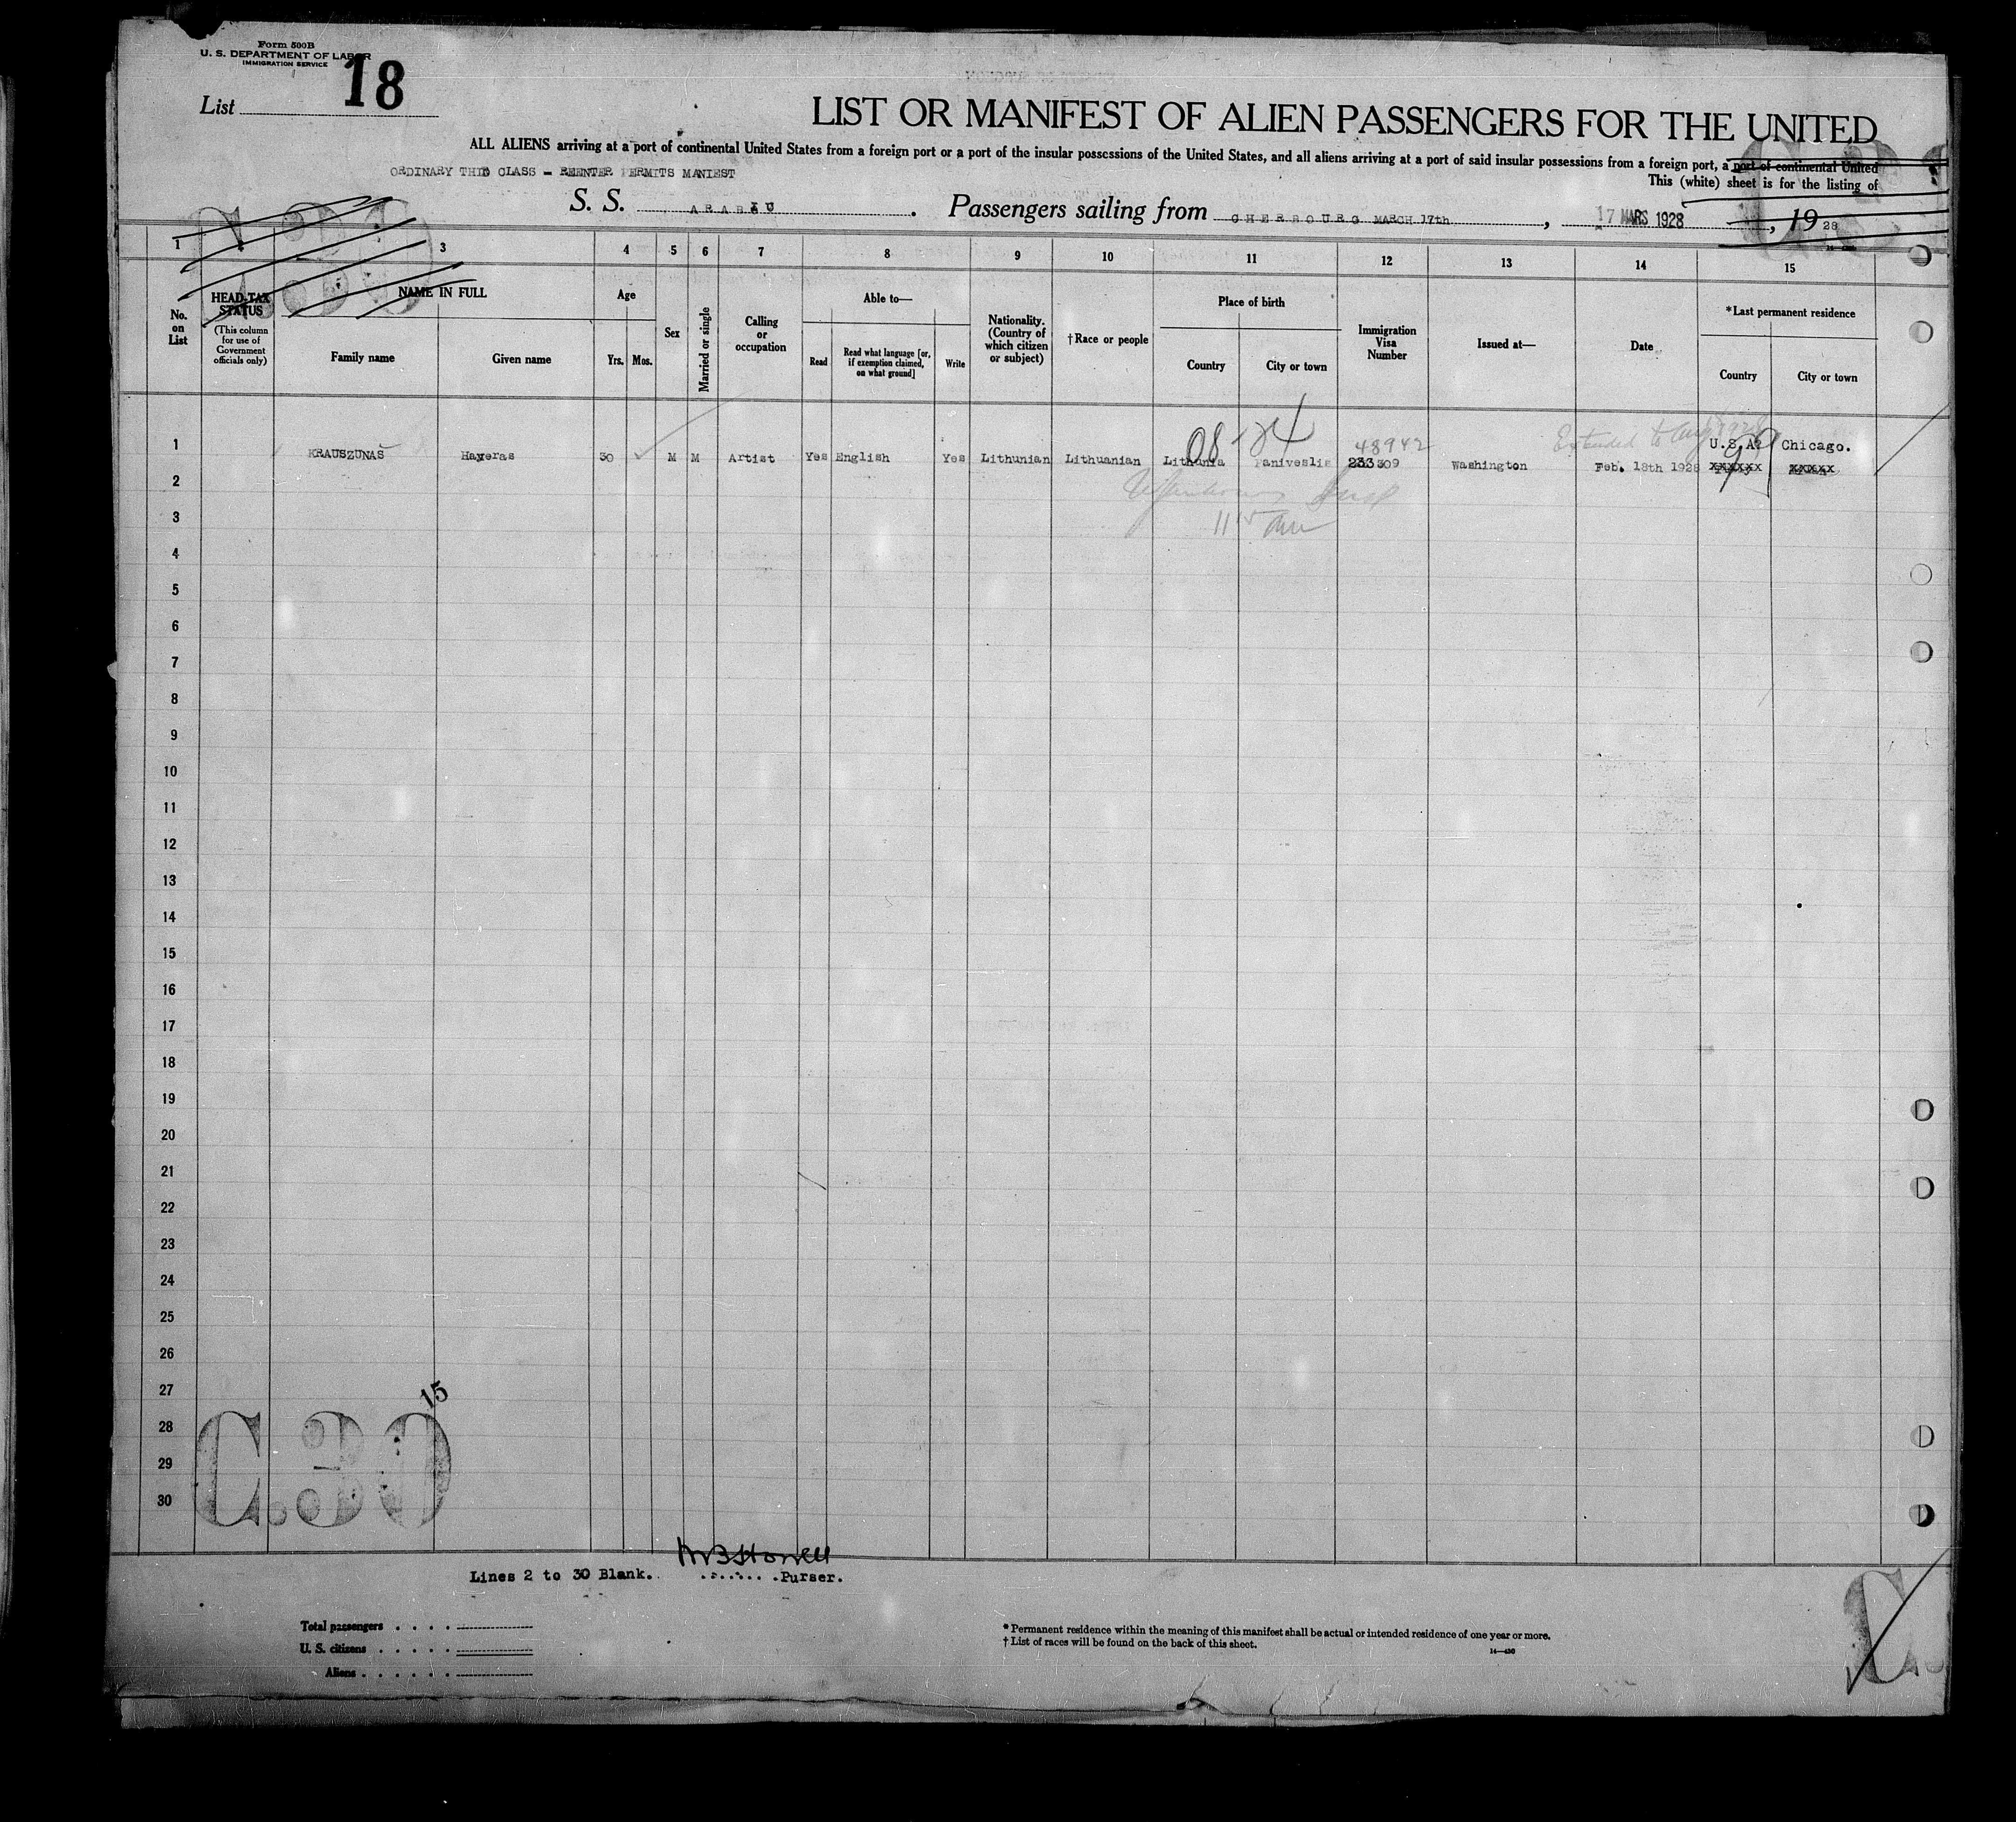 Form 500B
U. S. DEPARTMENT OF LABOR
IMMIGRATION SERVICE
List 18
LIST OR MANIFEST OF ALIEN PASSENGERS FOR THE UNITED
ALL ALIENS arriving at a port of continental United States from a foreign port or a port of the insular possessions of the United States, and all aliens arriving at a port of said insular possessions from a foreign port, a port of continental United
This (white) sheet is for the listing of
ORDINARY THID CLASS - REENTER PERMITS MANIEST
S. S. . Passengers sailing from CHERBOURG MARCH 17th , 17 MARS 1928 , 19 28
1 3 4 5 6 7 8 9 10 11 12 13 14 15
No. on List
HEAD-TAX STATUS
(This column for use of Government officials only)
NAME IN FULL
Family name
Given name
Age
Yrs.
Mos.
Sex
Married or single
Calling or occupation
Able to—
Read
Read what language [or, if exemption claimed, on what ground]
Write
Nationality. (Country of which citizen or subject)
†Race or people
Place of birth
Country
City or town
Immigration Visa Number
Issued at—
Date
*Last permanent residence
Country
City or town
48942
Extended to Aug
1 KRAUSZUNAS 30 M M Artist Yes English Yes Lithunian Lithuanian Lithunia Washington Feb. 18th 1928 U.S.A. Chicago.
xxxxxx xxxxx
2
3
4
5
6
7
8
9
10
11
12
13
14
15
16
17
18
19
20
21
22
23
24
25
26
27
28
29
30
15
C.30
Lines 2 to 30 Blank. ....... .Purser.
Total passengers . . . .
U. S. citizens . . . . .
Aliens . . . . . .
* Permanent residence within the meaning of this manifest shall be actual or intended residence of one year or more.
† List of races will be found on the back of this sheet.
14—430